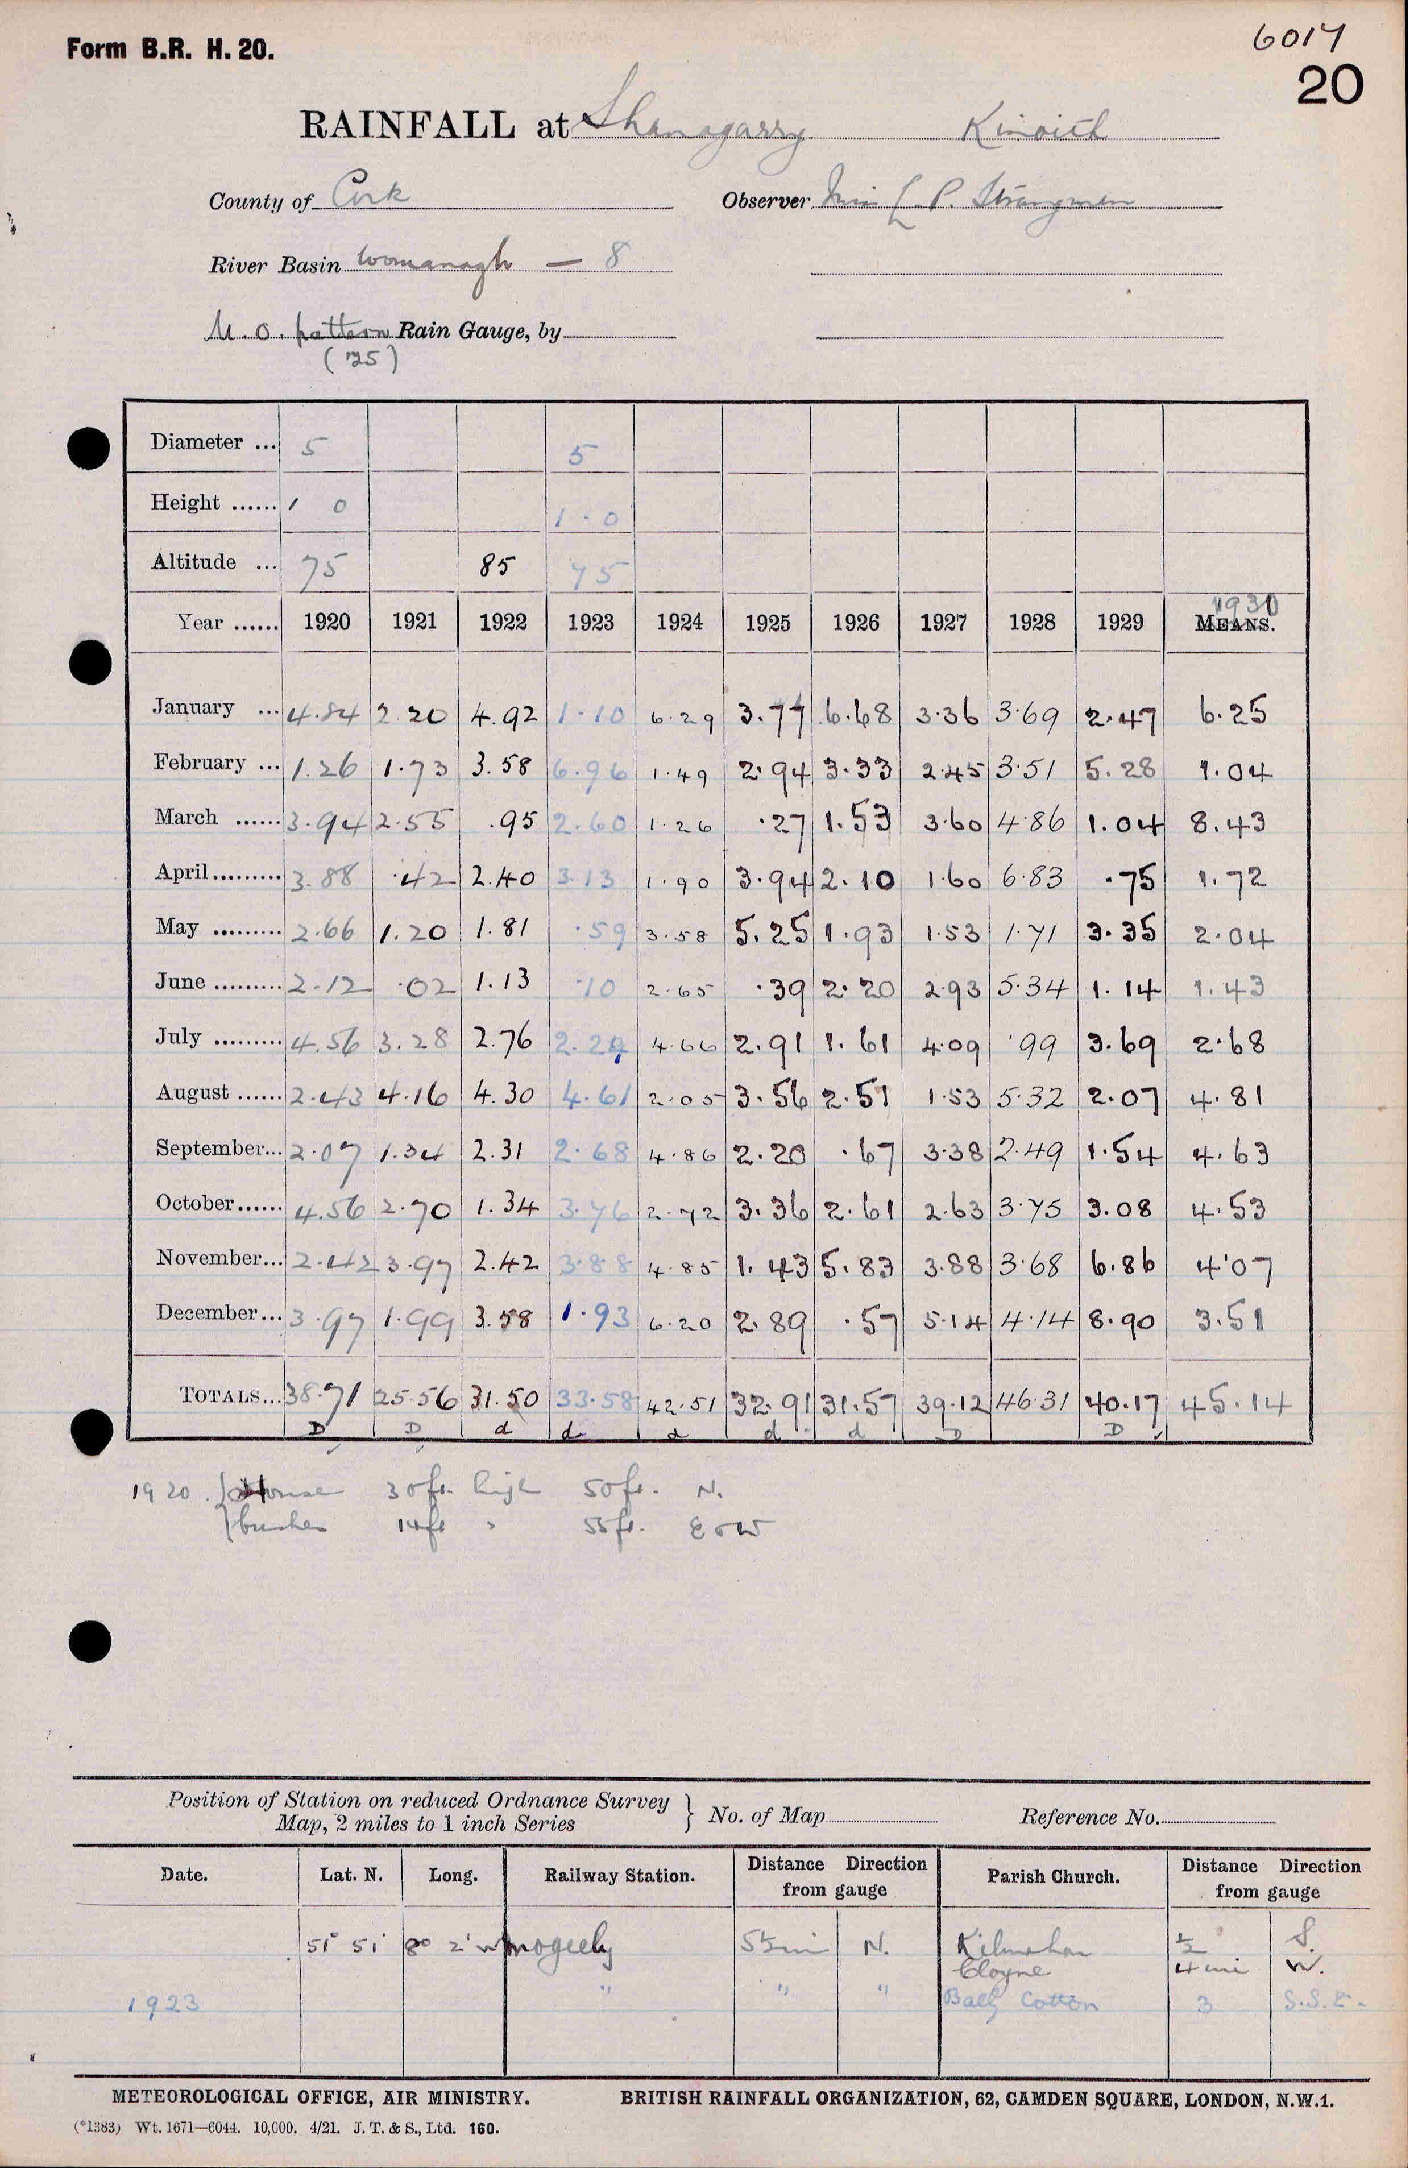 Form B.R. H. 20.
6017
20
RAINFALL at Shanagarry Kinoith
County of Cork Observer Miss L. P. Strangman
River Basin Womanagh — 8
M.O. pattern Rain Gauge, by
(75)
Diameter ... 5 5
Height ...... 1 0 1.0
Altitude ... 75 85 75
1930
Year ...... 1920 1921 1922 1923 1924 1925 1926 1927 1928 1929 MEANS.
January ... 4.84 2.20 4.92 1.10 6.29 3.77 6.68 3.36 3.69 2.47 6.25
February ... 1.26 1.73 3.58 6.96 1.49 2.94 3.33 2.45 3.51 5.28 1.04
March ...... 3.94 2.55 .95 2.60 1.26 .27 1.53 3.60 4.86 1.04 8.43
April......... 3.88 .42 2.40 3.13 1.90 3.94 2.10 1.60 6.83 .75 1.72
May ......... 2.66 1.20 1.81 .59 3.58 5.25 1.93 1.53 1.71 3.35 2.04
June ......... 2.12 .02 1.13 .10 2.65 .39 2.20 2.93 5.34 1.14 1.43
July ......... 4.56 3.28 2.76 2.24 4.66 2.91 1.61 4.09 .99 3.69 2.68
August ...... 2.43 4.16 4.30 4.61 2.05 3.56 2.51 1.53 5.32 2.07 4.81
September... 2.07 1.34 2.31 2.68 4.86 2.20 .67 3.38 2.49 1.54 4.63
October...... 4.56 2.70 1.34 3.76 2.72 3.36 2.61 2.63 3.75 3.08 4.53
November... 2.42 3.97 2.42 3.88 4.85 1.43 5.83 3.88 3.68 6.86 4.07
December... 3.97 1.99 3.58 1.93 6.20 2.89 .57 5.14 4.14 8.90 3.51
TOTALS... 38.71 25.56 31.50 33.58 42.51 32.91 31.57 39.12 46.31 40.17 45.14
D D d d d d d D D
1920. House 30ft. high 50ft. N.
bushes 14ft " 55ft. E & W
Position of Station on reduced Ordnance Survey
Map, 2 miles to 1 inch Series } No. of Map Reference No.
Date. Lat. N. Long. Railway Station. Distance Direction from gauge Parish Church. Distance Direction from gauge
51° 51' 8° 2' W Mogeely 5½mi N. Kilmahon ½ S.
Cloyne 4 mi W.
1923 " " " Bally Cotton 3 S.S.E.
METEOROLOGICAL OFFICE, AIR MINISTRY. BRITISH RAINFALL ORGANIZATION, 62, CAMDEN SQUARE, LONDON, N.W.1.
(*1383) Wt. 1671—6044. 10,000. 4/21. J. T. & S., Ltd. 160.